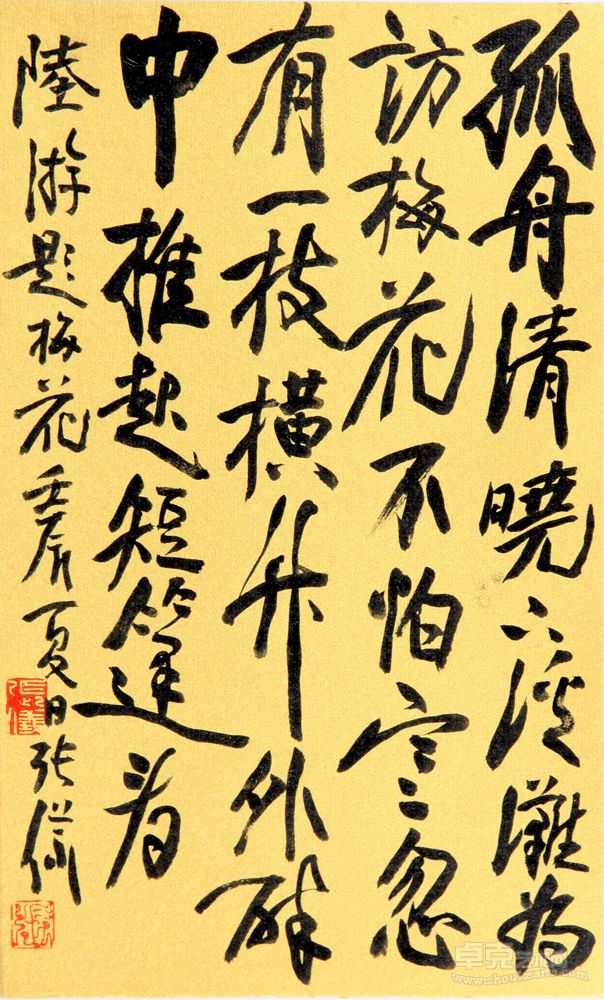 孤舟清曉下溪灘為
訪梅花不怕寒忽
有一枝橫竹外醉
中推起短篷看
陸游題梅花壬辰夏日張儀
張儀
卓克艺术网